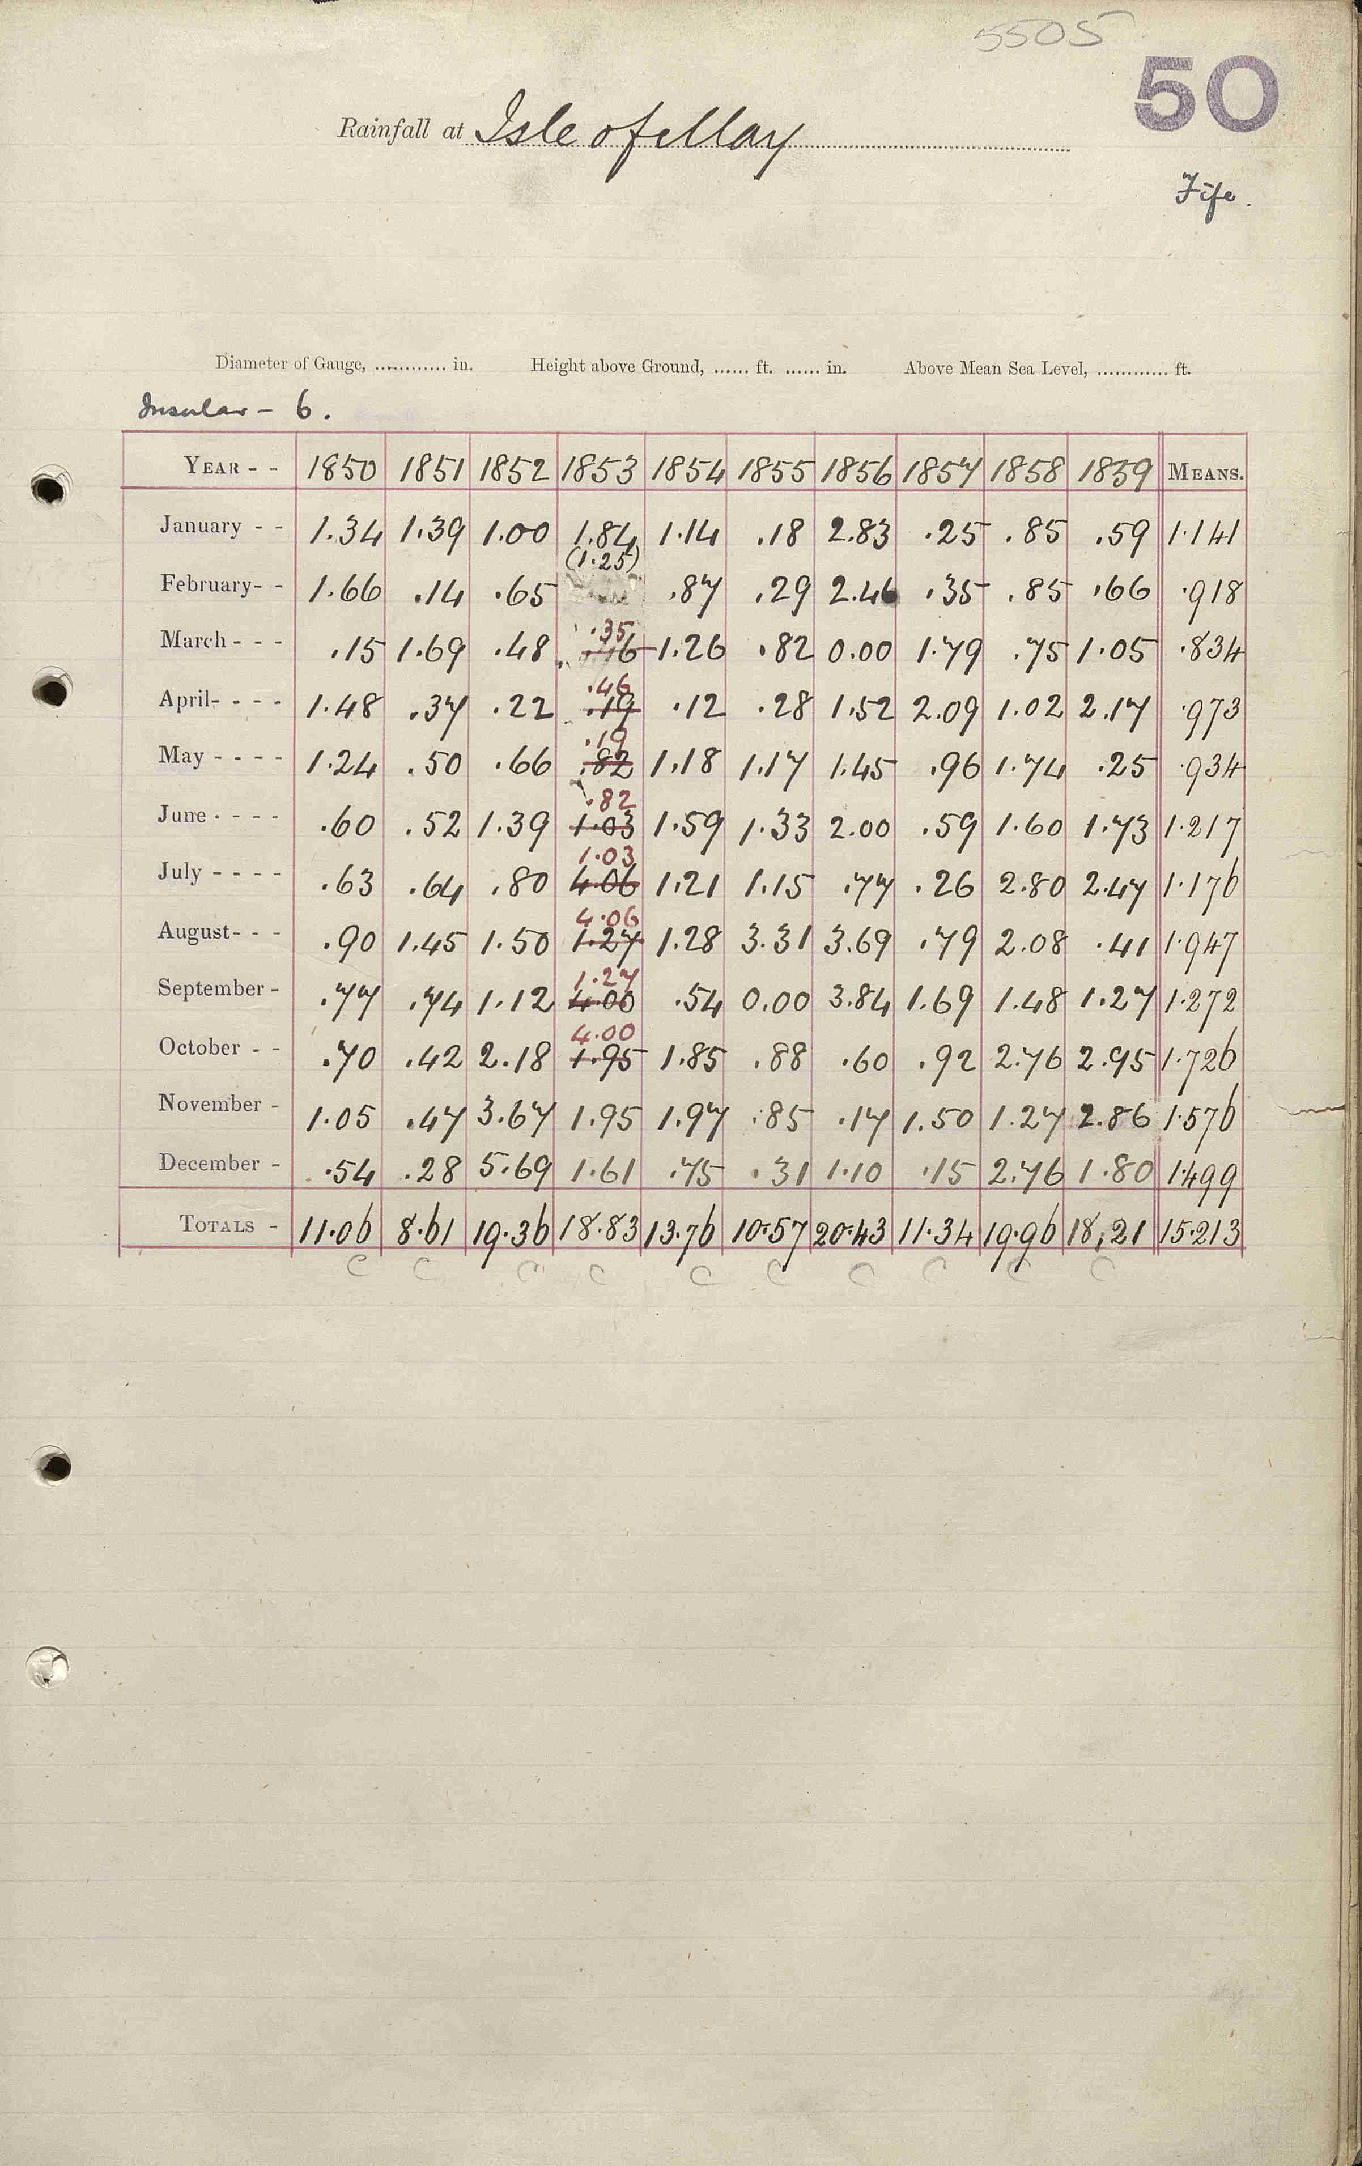 5505
50
Rainfall at Isle of May
Fife.
Diameter of Gauge, ............ in. Height above Ground, ...... ft. ...... in. Above Mean Sea Level, ............ ft.
Insular - 6.
YEAR - - 1850 1851 1852 1853 1854 1855 1856 1857 1858 1859 MEANS.
January - - 1.34 1.39 1.00 1.84 1.14 .18 2.83 .25 .85 .59 1.141
(1.25)
February- - 1.66 .14 .65 .87 .29 2.46 .35 .85 .66 .918
.35
March - - - .15 1.69 .48 .46 1.26 .82 0.00 1.79 .75 1.05 .834
.46
April- - - - 1.48 .37 .22 .19 .12 .28 1.52 2.09 1.02 2.17 .973
.19
May - - - - 1.24 .50 .66 .82 1.18 1.17 1.45 .96 1.74 .25 .934
.82
June - - - - .60 .52 1.39 1.03 1.59 1.33 2.00 .59 1.60 1.73 1.217
1.03
July - - - - .63 .64 .80 4.06 1.21 1.15 .77 .26 2.80 2.47 1.176
4.06
August- - - .90 1.45 1.50 1.27 1.28 3.31 3.69 .79 2.08 .41 1.947
1.27
September - .77 .74 1.12 4.00 .54 0.00 3.84 1.69 1.48 1.27 1.272
4.00
October - - .70 .42 2.18 1.95 1.85 .88 .60 .92 2.76 2.95 1.726
November - 1.05 .47 3.67 1.95 1.97 .85 .17 1.50 1.27 2.86 1.576
December - .54 .28 5.69 1.61 .75 .31 1.10 .15 2.76 1.80 1.499
TOTALS - 11.06 8.61 19.36 18.83 13.76 10.57 20.43 11.34 19.96 18.21 15.213
C C C C C C C C C C